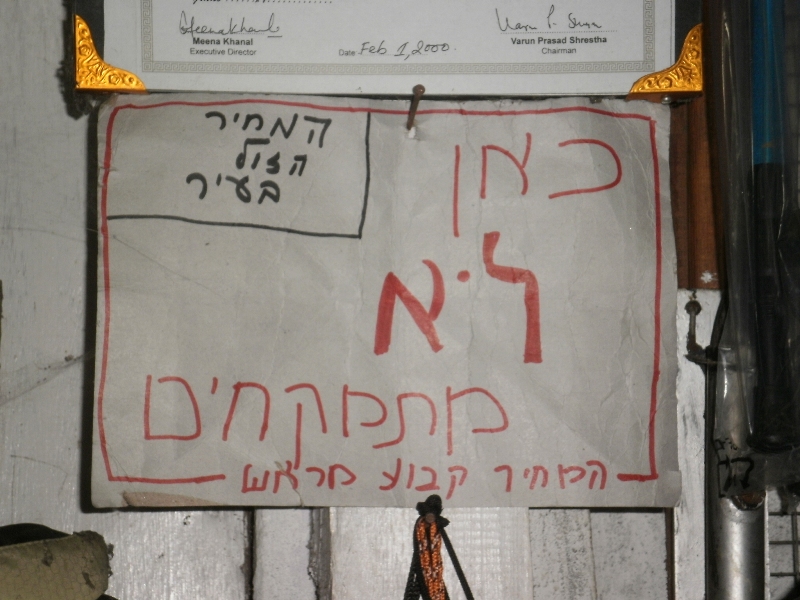 Meena Khanal
Executive Director
Date Feb. 1, 2000.
Varun Prasad Shrestha
Chairman
המחיר
הזול
בעיר
כאן
לא
מתמקחים
המחיר קבוע מראש